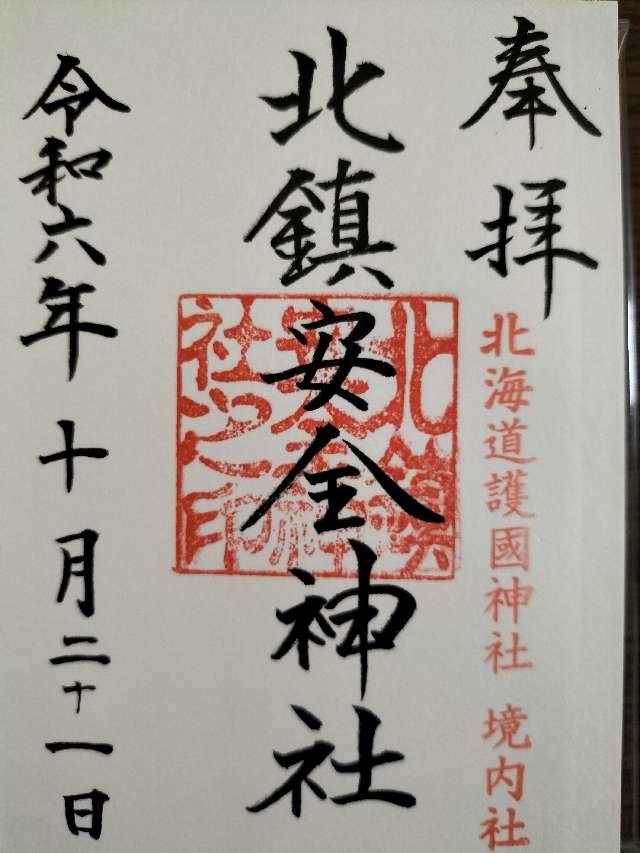 奉拝
北海道護國神社 境内社
北鎮安全神社
北鎮安全神社之印
令和六年十月二十一日